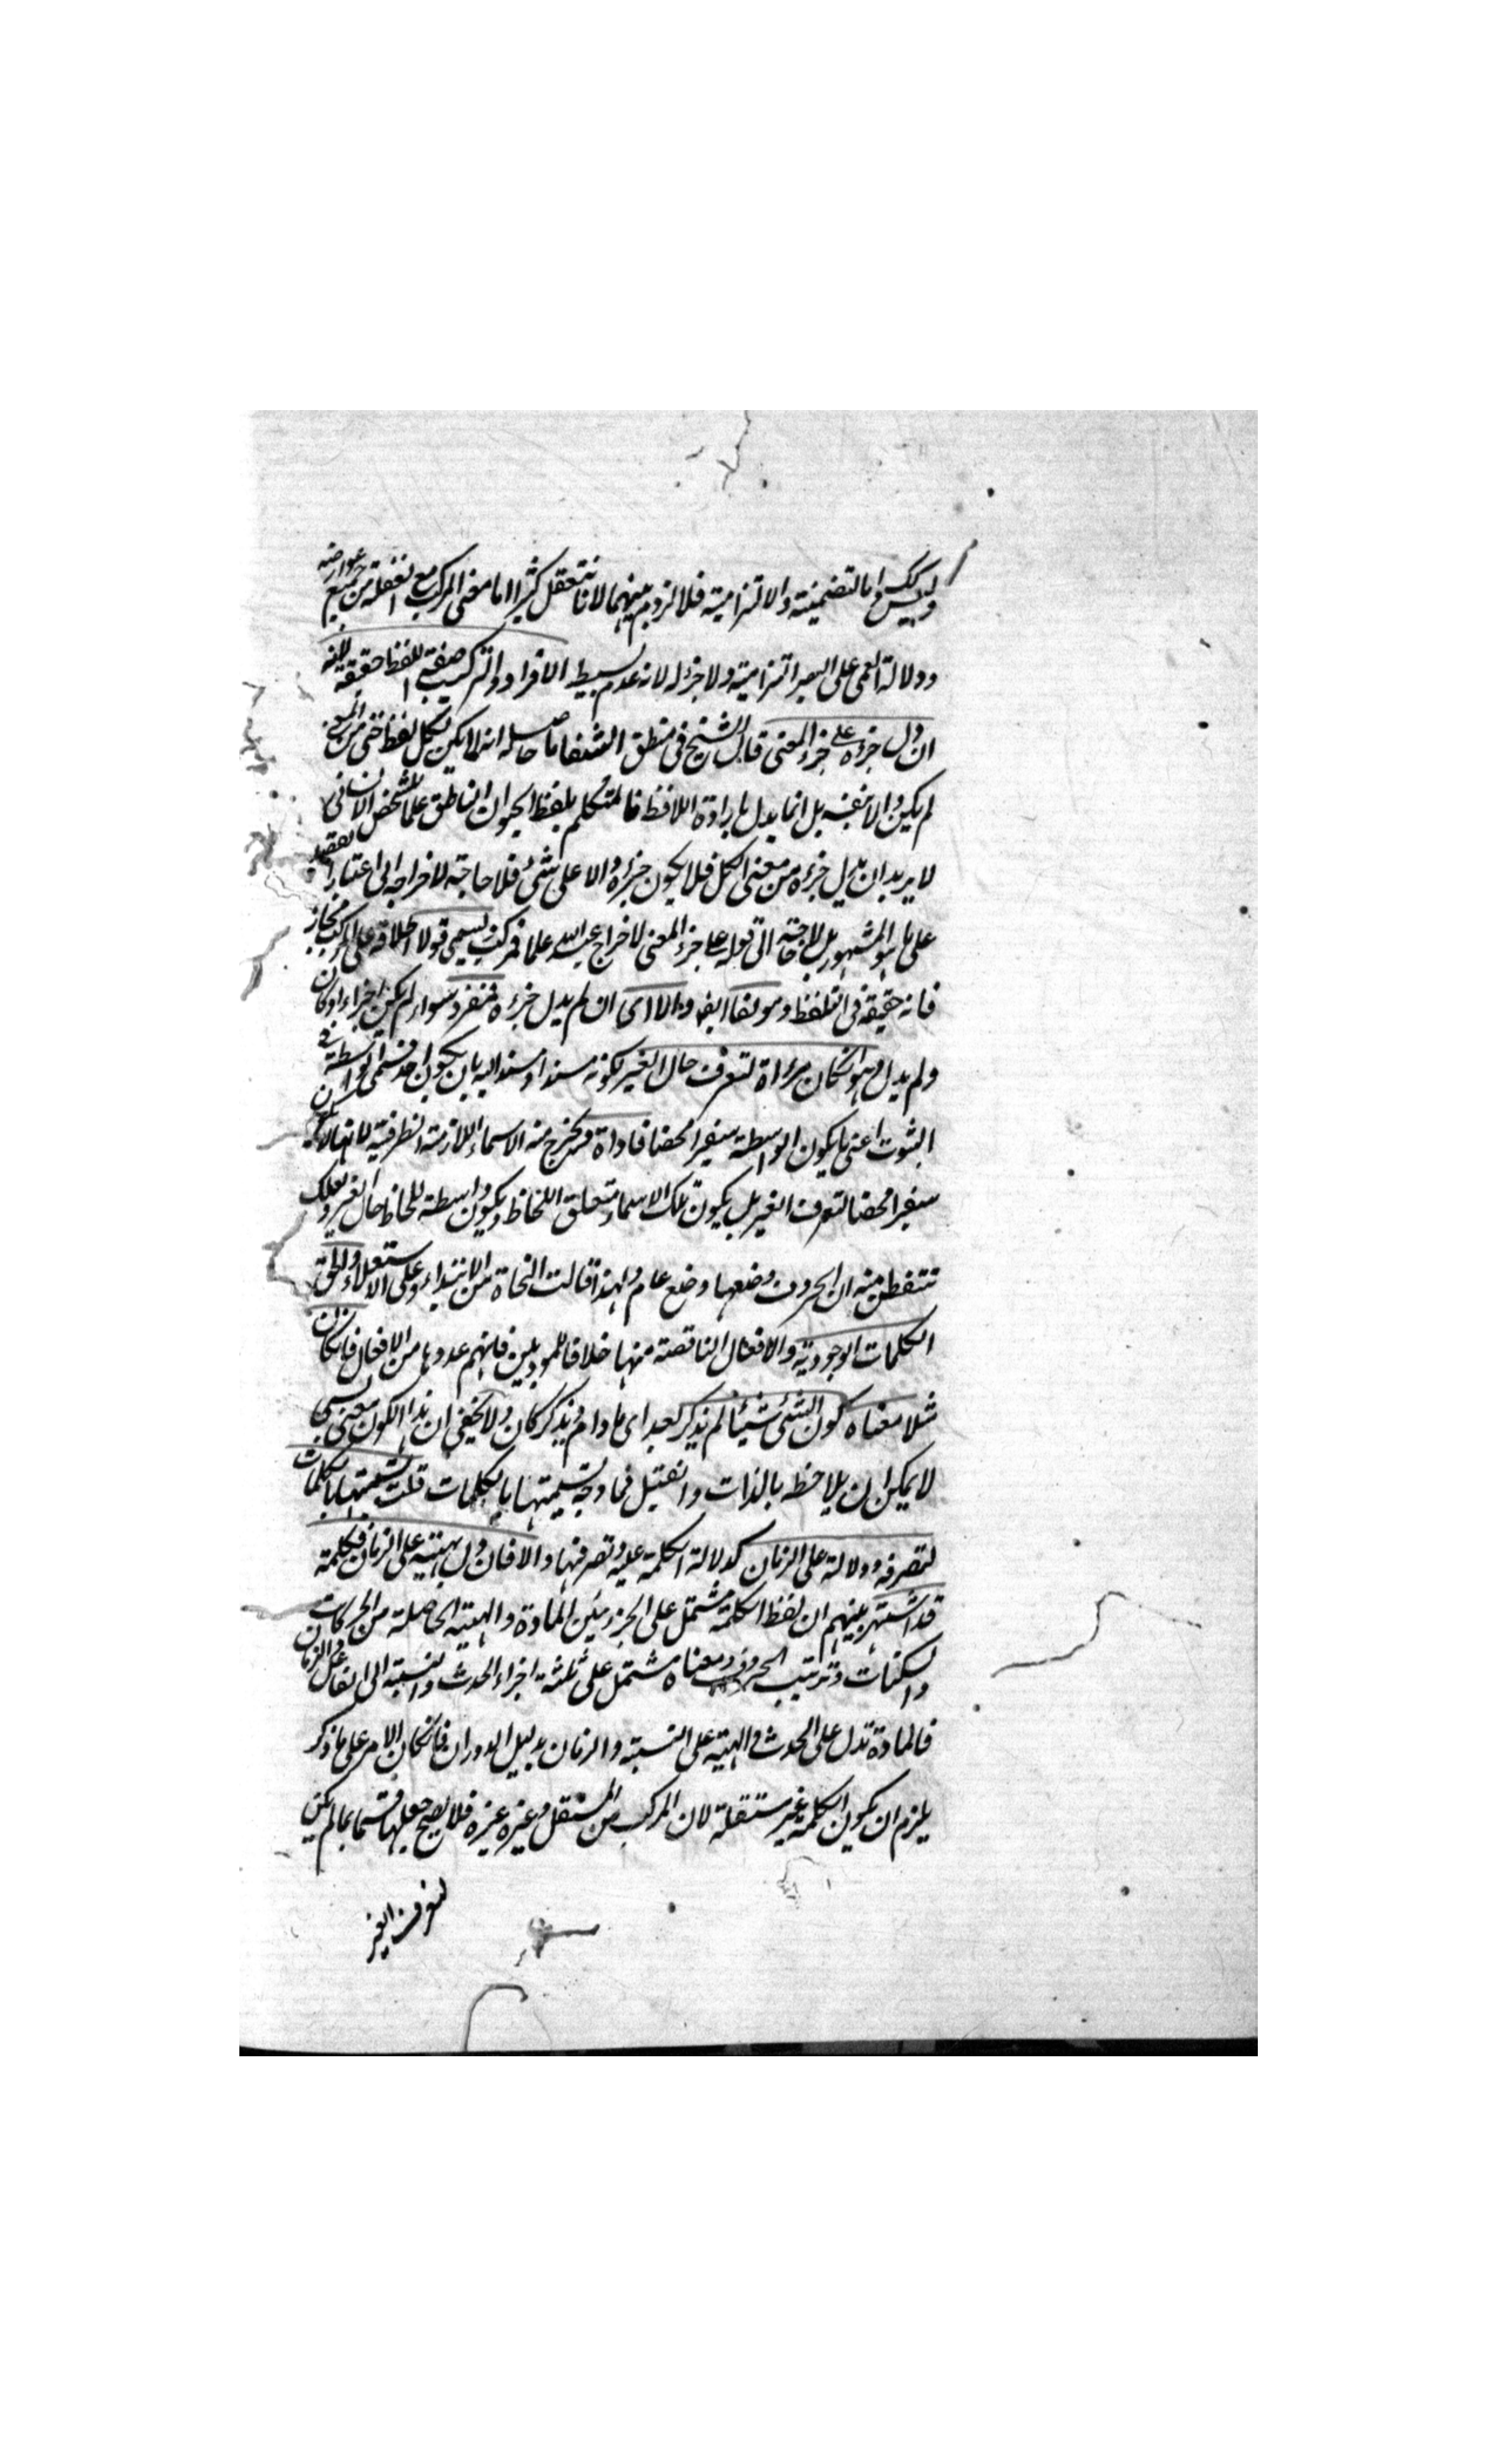 وليس كك واما التضمنية والالتزامية فلا لزوم بينهما لانا نتعقل كثيرا ما معنى المركب مع الغفلة من جميع عوارضه
ودلالة العمى على البصر التزامية ولا جزء له لانه عدم بسيط الافراد والتركيب صفة اللفظ حقيقة لانه
ان دل جزءه على جزء المعنى قال الشيخ في منطق الشفا ما حاصله انه لما لم يكن لكل لفظ حق من المعنى
لم يكن دالا بنفسه بل انما يدل بارادة اللافظ فالمتكلم بلفظ الحيوان الناطق علما للشخص الانساني
لا يريد ان يدل جزءه من معنى الكل فلا يكون جزءه دالا على شئ فلا حاجة لاخراجه الى اعتبار القصد
على ما هو المشهور بل لا حاجة الى قوله على جزء المعنى لاخراج عبد الله علما فمركب ويسمى قولا اطلاقه على المركب مجاز
فانه حقيقة في التلفظ ومولفا ايضا والا اى ان لم يدل جزءه فمفرد سواء لم يكن اجزاء او كان
ولم يدل وهو ان كان مرءاة لتعرف حال الغير لكونه مسندا او مسندا اليه بان يكون احد قسمى الواسطة في
الثبوت اعنى ما يكون الواسطة سفيرا محضا فاداة فخرج منه الاسماء اللازمة الظرفية لانها لا يكون
سفيرا محضا لتعرف الغير بل يكون تلك الاسماء متعلق اللحاظ ويكون واسطة للحاظ حال الغير ولعلك
تتفطن منه ان الحروف وضعها وضع عام ولهذا قالت النحاة من للابتداء وعلى للاستعلاء والحق ان
الكلمات الوجودية والافعال الناقصة منها خلافا للمودبين فانهم عدوها من الافعال فان كان
مثلا معناه كون الشئ شيئا لم يذكر بعد اى ما دام يذكر كان ولا يخفى ان هذا الكون معنى نسبى
لا يمكن ان يلاحظ بالذات وان قيل فما وجه تسميتها بالكلمات قلت تسميتها بالكلمات
لتصرفه ودلالة على الزمان كدلالة الكلمة عليه وتصرفها والا فان دل بهيئته على الزمان فكلمة
قد اشتهر بينهم ان لفظ الكلمة مشتمل على الجزءين المادة والهيئة الحاصلة من الحركات
والسكنات وترتيب الحروف ومعناه مشتمل على ثلثة اجزاء الحدث والنسبة الى الفاعل والزمان
فالمادة تدل على الحدث والهيئة على النسبة والزمان بدليل الدوران فان كان الامر على ما ذكر
يلزم ان يكون الكلمة غير مستقلة لان المركب من المستقل وغيره غيره فلا يصح جعلها قسما بما لم يكن
لتعرف الغير